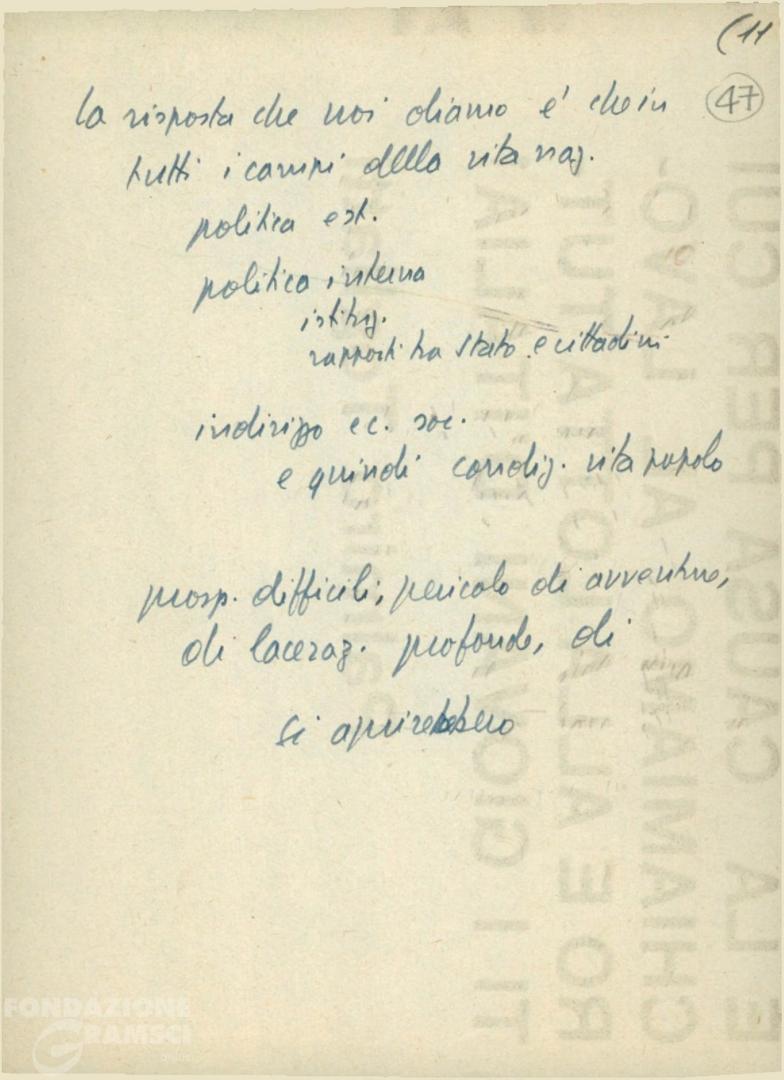 (11
47
la risposta che noi diamo e' che in
tutti i campi della vita naz.
politica est.
politica interna
istituz.
rapporti tra Stato e cittadini
indirizzo ec. soc.
e quindi condiz. vita popolo
prosp. difficili, pericolo di avventure,
di laceraz. profonde, di
si aprirebbero
FONDAZIONE
GRAMSCI